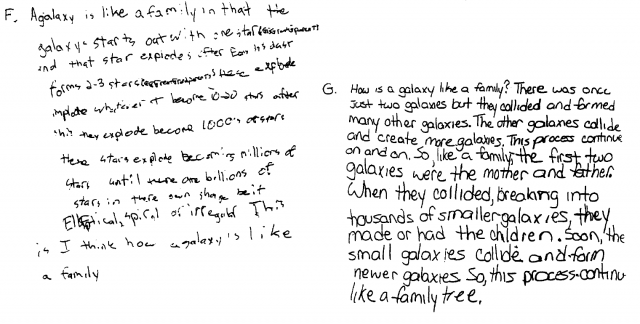 F. A galaxy is like a family in that the
galaxy starts out with one star
and that star explodes after
forms 2-3 stars these explode
implode whatever + become 10-20 stars after
this they explode become 1000's of stars
these stars explode becoming millions of
stars until there are billions of
stars in there own shape be it
Elliptical, spiral or irregular This
is I think how a galaxy is like
a family
G. How is a galaxy like a family? There was once
Just two galaxies but they collided and formed
many other galaxies. The other galaxies collide
and create more galaxies. This process continue
on and on. So, like a family, the first two
galaxies were the mother and father.
When they collided, breaking into
thousands of smaller galaxies, they
made or had the children. Soon, the
small galaxies collide and form
newer galaxies. So, this process continu
like a family tree.